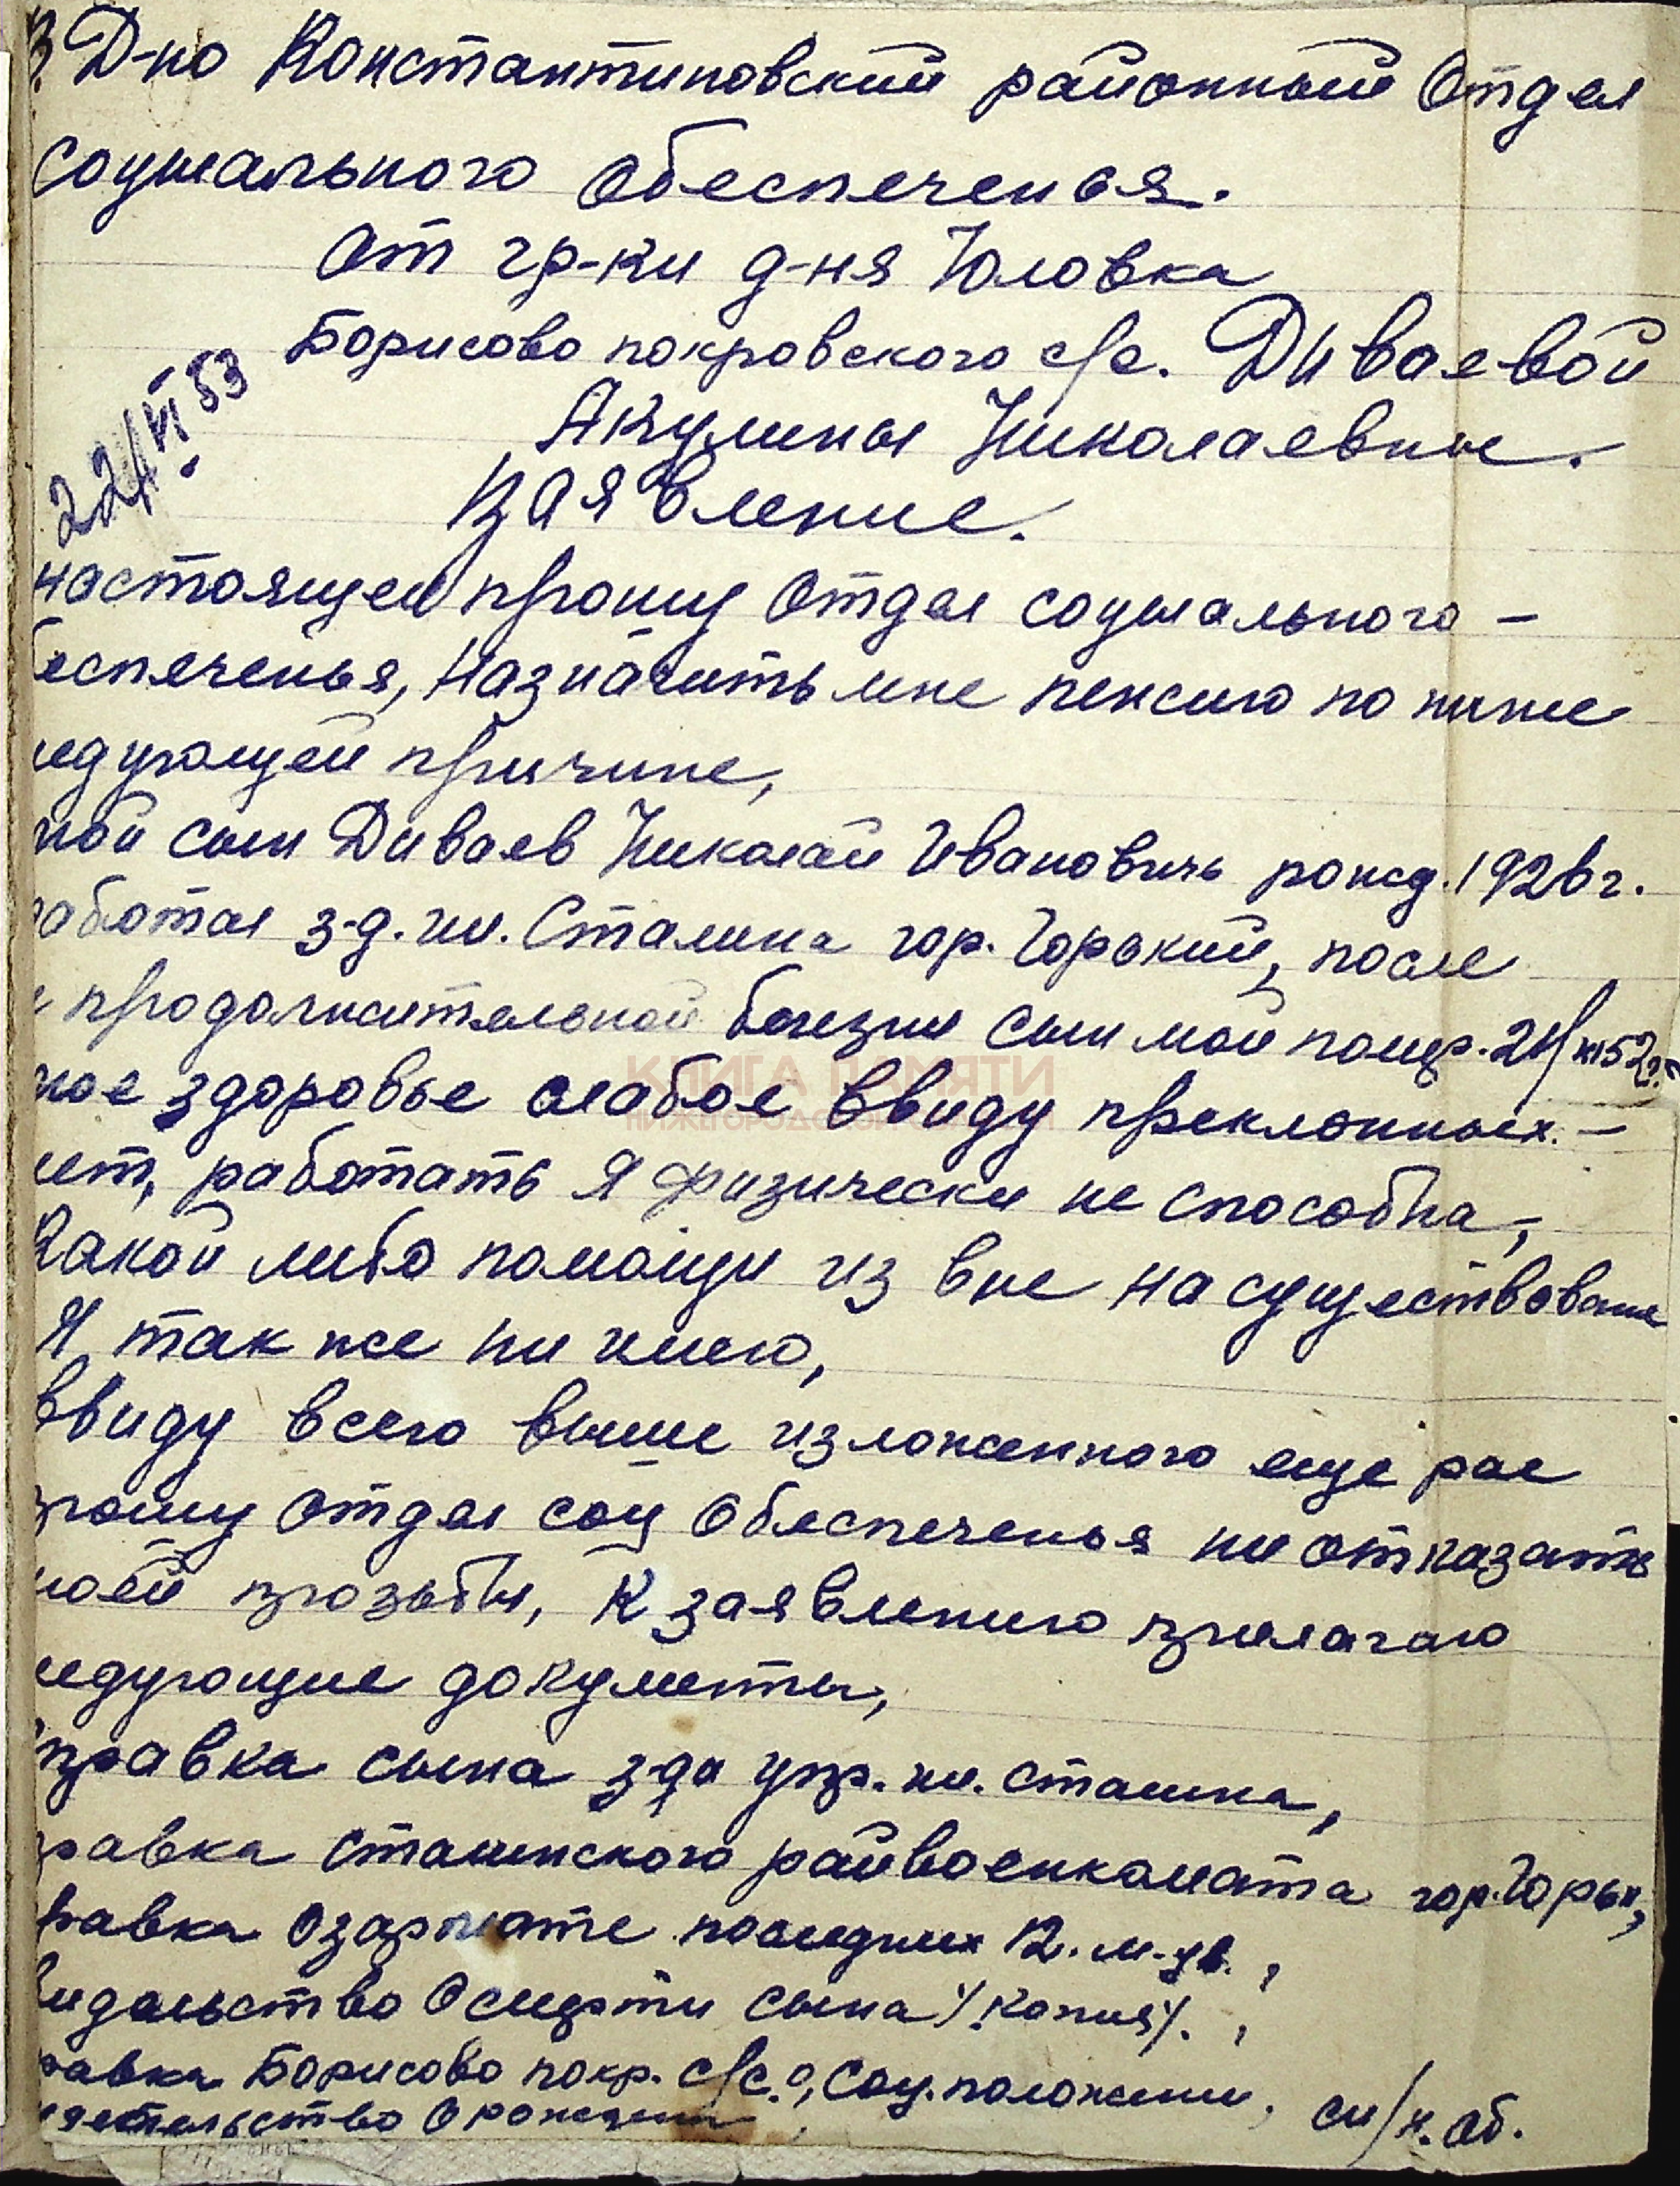 Д-но Константиновский районный Отдел
социального обеспеченья.
От гр-ки д-ня Юловка
Борисово покровского с/с. Диваевой
22/VI 53
Акулины Николаевны.
Заявление.
настоящем прошу Отдел социального –
беспеченья, Назначить мне пенсию по ниже
ледующей причине,
мой сын Диваев Николай Ивановичь рожд. 1926г.
работал з-д. им. Сталина гор. Горький, после
продолжительной болезни сын мой помер. 21/
КНИГА ПАМЯТИ
мое здоровье слабое ввиду преклонных. –
лет, работать Я физически не способна,
Какой либо помощи из вне на существование
Я так же ни имею,
ввиду всего выше изложенного еще рас
прошу Отдел соц Обеспеченья ни отказать
моей прозьбы, К заявлению прилагаю
ледующие документы,
правка сына з-да упр. им. Сталина,
равка Сталинского райвоенкомата гор. Горьк,
равка О зарплате последних 12. м-цв. ,
видельство О смерти сына /.копия/. ,
равка Борисово покр. с/с. О, Соц. положении, см/н. об.
детельство О рождении